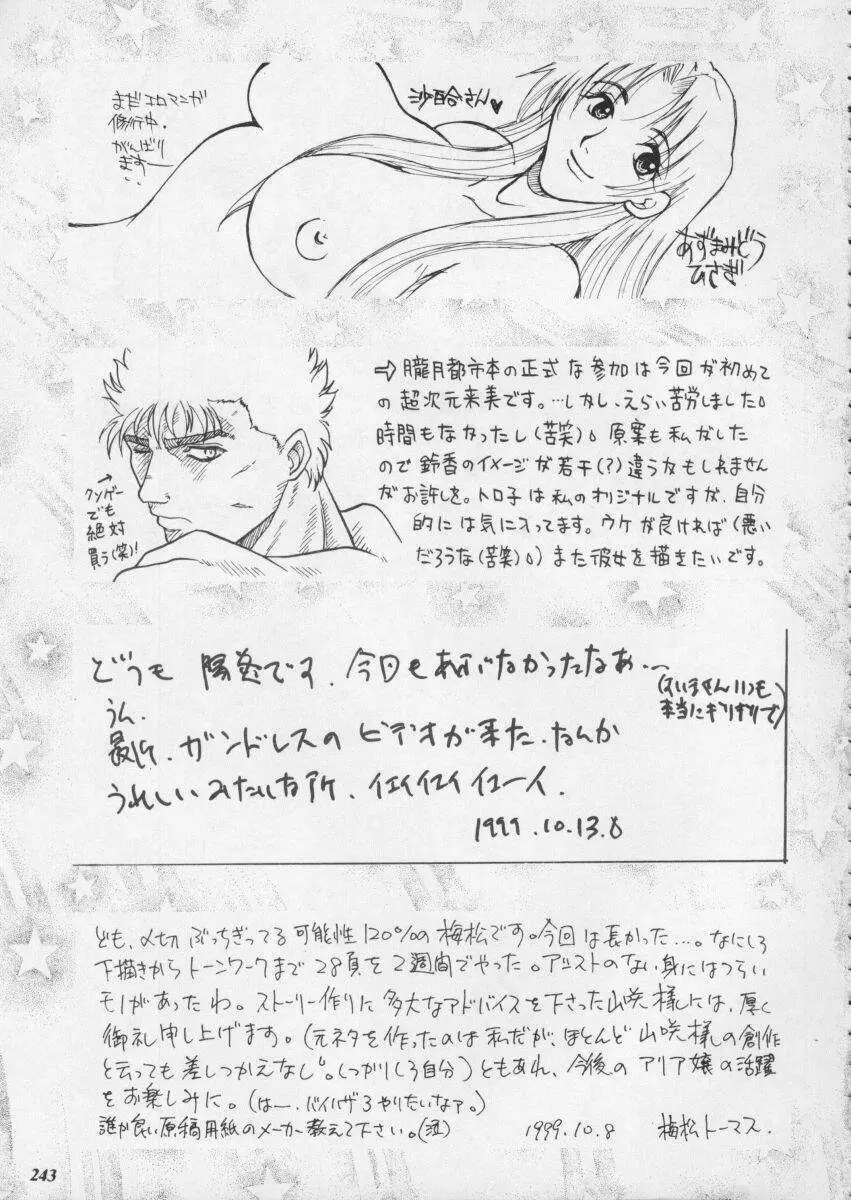 まだエロマンガ
修行中.
がんばり
ますー
沙百合さん♥
あずまみどう
ひさぎ
⇨朧月都市本の正式な参加は今回が初めて
の超次元来美です。…しかし、えらい苦労しました。
時間もなかったし(苦笑)。原案も私がした
ので鈴香のイメージが若干(?)違うかもしれません
がお許しを。トロ子は私のオリジナルですが、自分
的には気に入ってます。ウケが良ければ(悪い
だろうな(苦笑)。)また彼女を描きたいです。
→
クソゲー
でも
絶対
買う(笑)!
どうも 陽炎です. 今回もあぶなかったなあ…
(すいませんいつも
本当にギリギリで)
うん.
最近、ガンドレスのビデオが来た.なんか
うれしいみたいな所、イエイイエイイエーイ.
1999.10.13.8
ども、〆切ぶっちぎってる可能性120%の梅松です。今回は長かった…。なにしろ
下描きからトーンワークまで28頁を2週間でやった。アシストのない身にはつらい
モノがあったわ。ストーリー作りに多大なアドバイスを下さった山咲様には、厚く
御礼申し上げます。(元ネタを作ったのは私だが、ほとんど山咲様の創作
と云っても差しつかえなし。しっかりしろ自分)ともあれ、今後のアリア嬢の活躍
をお楽しみに。(はー、バイハザ3やりたいなァ。)
誰か良い原稿用紙のメーカー教えて下さい。(泣) 1999.10.8 梅松トーマス.
243